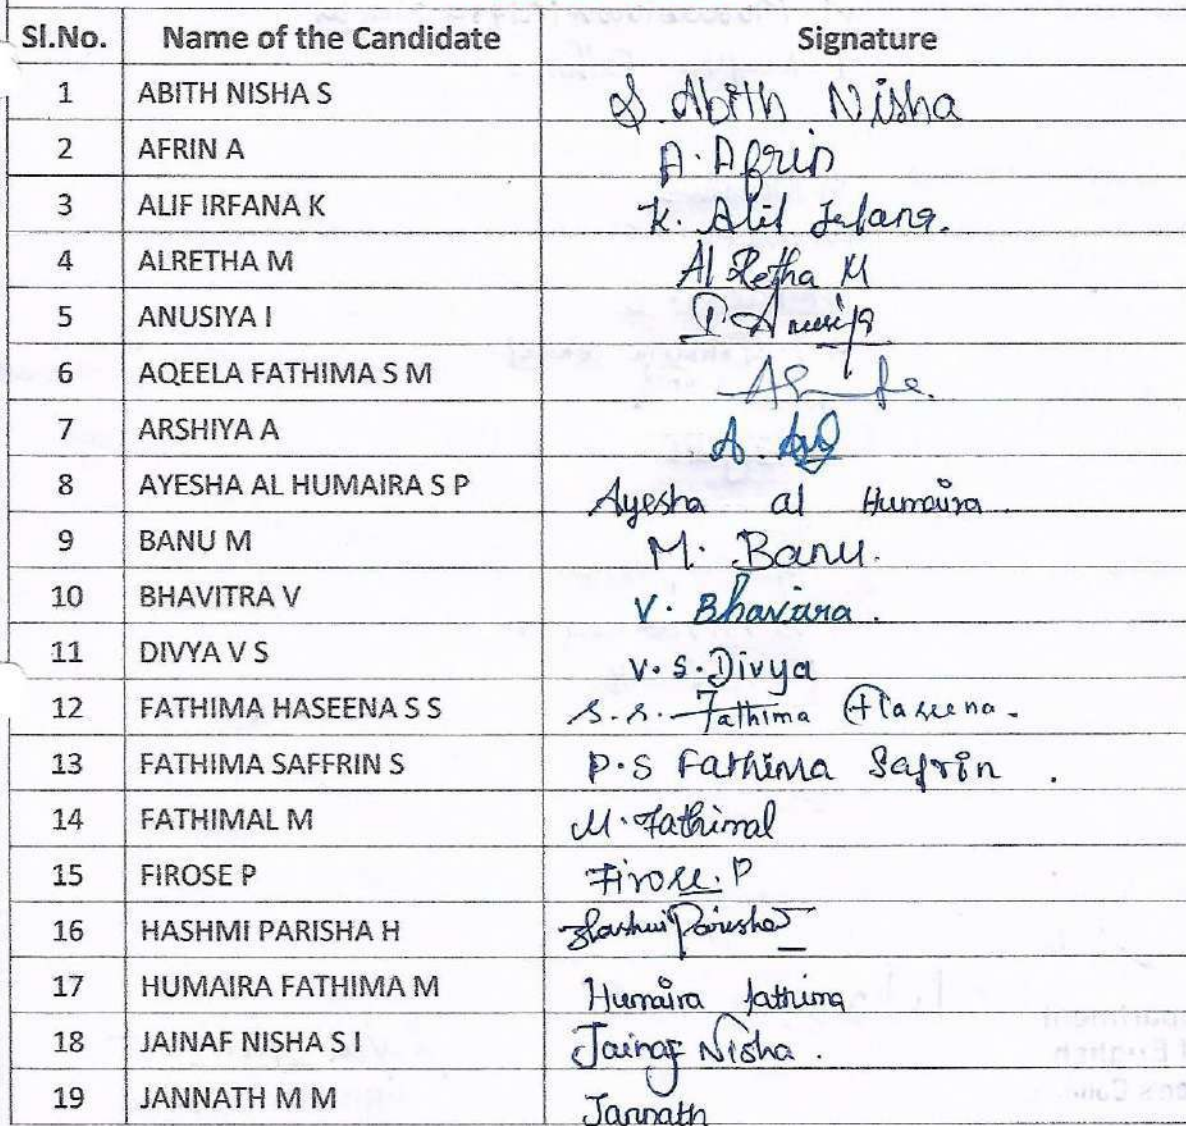 Sl.No. Name of the Candidate Signature
1 ABITH NISHA S S. Abith Nisha
2 AFRIN A A. Afrin
3 ALIF IRFANA K K. Alif Irfana.
4 ALRETHA M Al Retha M
5 ANUSIYA I I. Anusiya
6 AQEELA FATHIMA S M
7 ARSHIYA A A.
8 AYESHA AL HUMAIRA S P Ayesha al Humaira
9 BANU M M. Banu.
10 BHAVITRA V V.
11 DIVYA V S V. S. Divya
12 FATHIMA HASEENA S S S. S. Fathima Haseena.
13 FATHIMA SAFFRIN S P.S Fathima Safrin .
14 FATHIMAL M M. Fathimal
15 FIROSE P Firose. P
16 HASHMI PARISHA H Hashmi Parisha
17 HUMAIRA FATHIMA M Humaira fathima
18 JAINAF NISHA S I Jainaf Nisha .
19 JANNATH M M Jannath